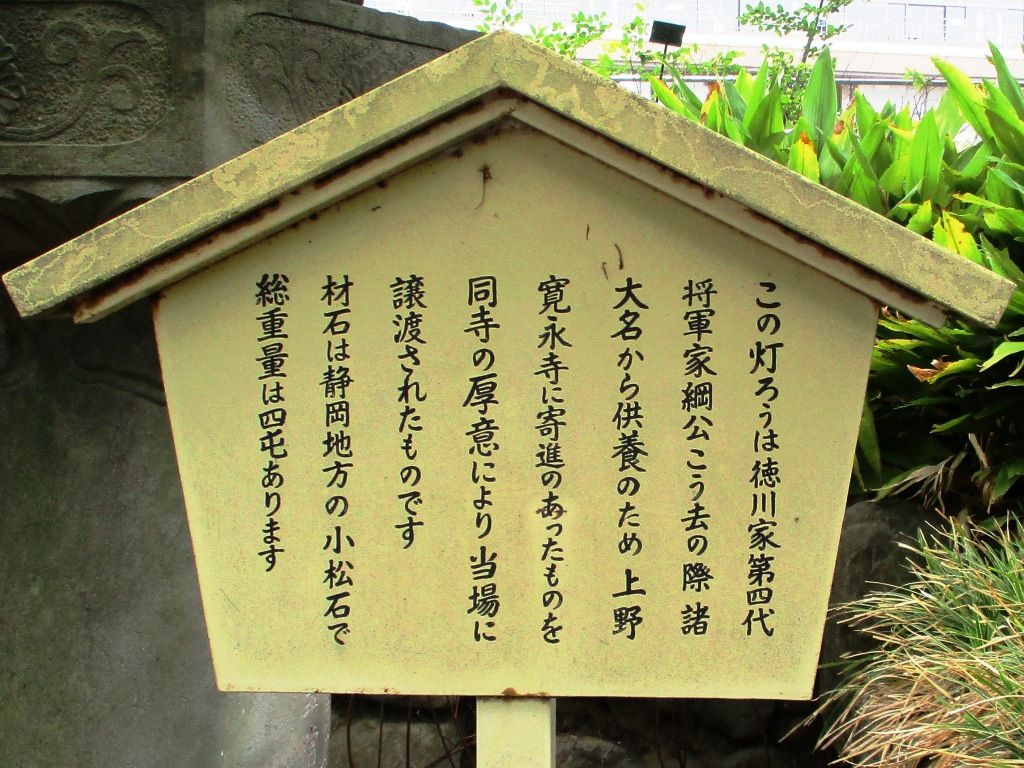 この灯ろうは徳川家第四代
将軍家綱公こう去の際諸
大名から供養のため上野
寛永寺に寄進のあったものを
同寺の厚意により当場に
譲渡されたものです
材石は静岡地方の小松石で
総重量は四屯あります